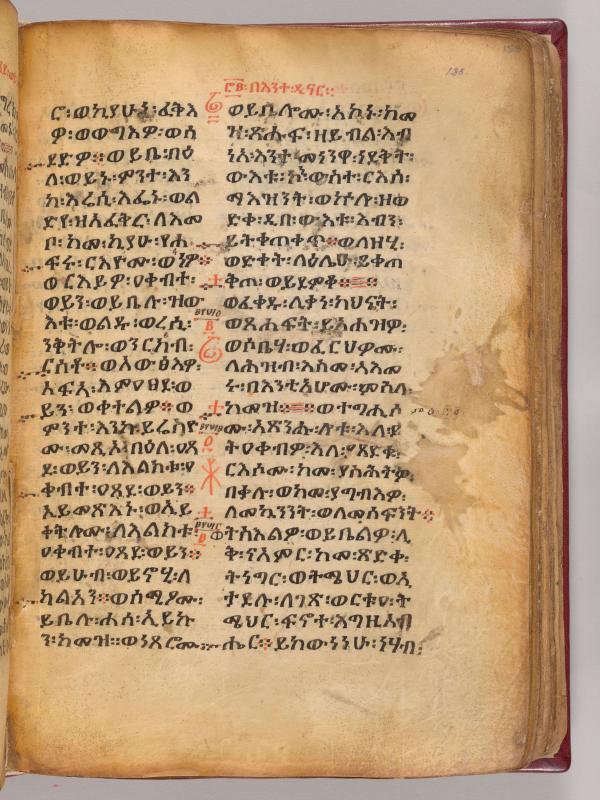 በእንተ፡ዲናር።
ሮ፡ወኪያሁኒ፡ፈቅአ
ዎ፡ወወግእዎ፡ወሰ
ደድዎ።ወይቤ፡በዕ
ለ፡ወይኑ፡ምንተ፡እን
ከ፡እሬሲ፡እፌኑ፡ወል
ድየ፡ዘአፈቅር፡ለእመ
ቦ፡ከመ፡ኪያሁ፡የሐ
ፍሩ፡ርእዮሙ፡
ወርእይዎ፡ዐቀብተ፡
ወይን፡ወይቤሉ፡ዝው
እቱ፡ወልዱ፡ወረሲ፡
ንቅትሎ፡ወንርአብ፡
ርስቶ።ወአውፅእዎ፡
አፍአ፡እምዐፀደ፡ወ
ይን፡ወቀተልዎ።ወ
ምንተ፡እንከ፡ይሬስዮ
ሙ፡መጺኦ፡በዕለ፡ዐጸ
ደ፡ወይን፡ለእልክቱ፡ዐ
ቀብተ፡ዐጸደ፡ወይን።
አይመጽእኑ፡ወአይ
ቀትሎሙ፡ለእልክቱ፡
ዐቀብተ፡ዐጸደ፡ወይን።
ወይሁብ፡ወይኖሂ፡ለ
ካልአን።ወሰሚዖሙ፡
ይቤሉ፡ሐሰ፡ኢይኩ
ን፡ከመዝ።ወነጸሮሙ
ወይቤሎሙ፡አኮኑ፡ከመ
ዝ፡ጽሑፍ፡ዘይብል፡እብ
ነ፡እንተ፡መነንዋ፡ነደቅት፡
ውእቱ፡ኮነ፡ውስተ፡ርእሰ፡
ማእዝንት፡ወኵሉ፡ዘወ
ድቀ፡ዲበ፡ውእቱ፡እብን፡
ይትቀጠቀጥ።ወለዘሂ፡
ወድቀት፡ላዕሌሁ፡ይቀጠ
ቅጦ፡ወይደምቆ።
ወፈቀዱ፡ሊቃነ፡ካህናት፡
ወጸሐፍት፡ይአኅዝዎ፡
ወሶቤሃ፡ወፈርህዎሙ፡
ለሕዝብ፡እስመ፡ኣእመ
ሩ፡በእንቲአሆሙ፡መሰለ፡
ከመዝ።ወተግሒሶ
ሙ፡አጽንሑ፡ሎቱ፡እለ፡ይ
ትዐቀብዎ፡እለ፡ያጸድቁ፡
ርእሶሙ፡ከመ፡ያስሕትዎ፡
በቃሉ፡ወከመ፡ያግብእዎ፡
ለመኰንንት፡ወለመሳፍንት።
ወተስእልዎ፡ወይቤልዎ፡ሊ
ቅ፡ናአምር፡ከመ፡ጽድቀ፡
ትነግር፡ወትሜህር፡ወኢ
ታደሉ፡ለገጽ፡ወርቱዐ፡ት
ሜህር፡ፍኖተ፡እግዚአብ
ሔር።ይከውነነሁ፡ነሃብ፡